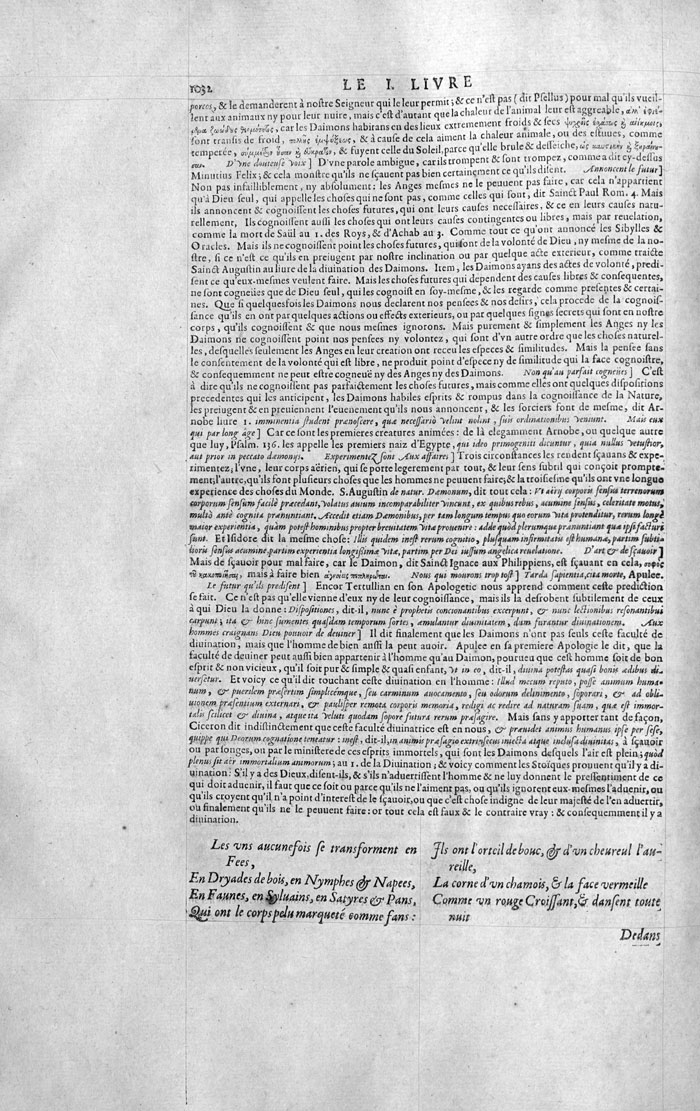 1032
LE I. LIVRE
porces, & le demanderent à nostre Seigneur qui le leur permit; & ce n'est pas (dit Psellus) pour mal qu'ils vueil-
lent aux animaux ny pour leur nuire, mais c'est d'autant que la chaleur de l'animal leur est aggreable,
car les Daimons habitans en des lieux extremement froids & secs
sont transis de froid, & à cause de cela aiment la chaleur animale, ou des estuues, comme
temperée, & fuyent celle du Soleil, parce qu'elle brule & desseiche,
D'vne douteuse voix] D'vne parole ambigue, car ils trompent & sont trompez, comme a dit cy-dessus
Minutius Felix; & cela monstre qu'ils ne sçauent pas bien certainement ce qu'ils disent. Annoncent le futur]
Non pas infailliblement, ny absolument: les Anges mesmes ne le peuuent pas faire, car cela n'appartient
qu'à Dieu seul, qui appelle les choses qui ne sont pas, comme celles qui sont, dit Sainct Paul Rom. 4. Mais
ils annoncent & cognoissent les choses futures, qui ont leurs causes necessaires, & ce en leurs causes natu-
rellement, Ils cognoissent aussi les choses qui ont leurs causes contingentes ou libres, mais par reuelation,
comme la mort de Saül au 1. des Roys, & d'Achab au 3. Comme tout ce qu'ont annoncé les Sibylles &
Oracles. Mais ils ne cognoissent point les choses futures, qui sont de la volonté de Dieu, ny mesme de la no-
stre, si ce n'est ce qu'ils en preiugent par nostre inclination ou par quelque acte exterieur, comme traicte
Sainct Augustin au liure de la diuination des Daimons. Item, les Daimons ayans des actes de volonté, predi-
sent ce qu'eux-mesmes veulent faire. Mais les choses futures qui dependent des causes libres & consequentes,
ne sont cogneües que de Dieu seul, qui les cognoist en soy-mesme, & les regarde comme presentes & certai-
nes. Que si quelquesfois les Daimons nous declarent nos pensees & nos desirs, cela procede de la cognois-
sance qu'ils en ont par quelques actions ou effects exterieurs, ou par quelques signes secrets qui sont en nostre
corps, qu'ils cognoissent & que nous mesmes ignorons. Mais purement & simplement les Anges ny les
Daimons ne cognoissent point nos pensees ny volontez, qui sont d'vn autre ordre que les choses naturel-
les, desquelles seulement les Anges en leur creation ont receu les especes & similitudes. Mais la pensee sans
le consentement de la volonté qui est libre, ne produit point d'espece ny de similitude qui la face cognoistre,
& consequemment ne peut estre cogneuë ny des Anges ny des Daimons. Non qu'au parfait cogneües] C'est
à dire qu'ils ne cognoissent pas parfaictement les choses futures, mais comme elles ont quelques dispositions
precedentes qui les anticipent, les Daimons habiles esprits & rompus dans la cognoissance de la Nature,
les preiugent & en preuiennent l'euenement qu'ils nous annoncent, & les sorciers font de mesme, dit Ar-
nobe liure 1. imminentia student prænoscere, quæ necessariò velint nolint, suis ordinationibus veniunt. Mais eux
qui par long âge] Car ce sont les premieres creatures animées: de là elegamment Arnobe, ou quelque autre
que luy, Psalm. 136. les appelle les premiers naiz d'Egypte, qui ideo primogeniti dicuntur, quia nullus vetustior,
aut prior in peccato dæmonys. Experimentez sont Aux affaires] Trois circonstances les rendent sçauans & expe-
rimentez; l'vne, leur corps aërien, qui se porte legerement par tout, & leur sens subtil qui conçoit prompte-
ment; l'autre, qu'ils font plusieurs choses que les hommes ne peuuent faire; & la troisiesme qu'ils ont vne longue
experience des choses du Monde. S. Augustin de natur. Dæmonum, dit tout cela: Vt aëry corporis sensus terrenorum
corporum sensum facilè præcedant, volatus auium incomparabiliter vincant, ex quibus rebus, acumine sensus, celeritate motus,
multò antè cognita prænuntiant. Accedit etiam Dæmonibus, per tam longum tempus quo eorum vita protenditur, rerum longè
maior experientia, quàm potest hominibus propter breuitatem vitæ prouenire: adde quòd plerumque prænuntiant quæ ipsi facturi
sunt. Et Isidore dit la mesme chose: Illis quidem inest rerum cognitio, plusquam infirmitatis est humanæ, partim subti-
lioris sensus acumine, partim experientia longissimæ vitæ, partim per Dei iussum angelica reuelatione. D'art & de sçauoir]
Mais de sçauoir pour mal faire, car le Daimon, dit Sainct Ignace aux Philippiens, est sçauant en cela,
mais à faire bien Nous qui mourons trop tost] Tarda sapientia, cita morte, Apulee.
Le futur qu'ils predisent] Encor Tertullian en son Apologetic nous apprend comment ceste prediction
se fait. Ce n'est pas qu'elle vienne d'eux ny de leur cognoissance, mais ils la desrobent subtilement de ceux
à qui Dieu la donne: Dispositiones, dit-il, nunc è prophetis concionantibus excerpunt, & nunc lectionibus resonantibus
carpunt; ita & hinc sumentes quasdam temporum sortes, æmulantur diuinitatem, dum furantur diuinationem. Aux
hommes craignans Dieu pouuoir de deuiner] Il dit finalement que les Daimons n'ont pas seuls ceste faculté de
diuination, mais que l'homme de bien aussi la peut auoir. Apulee en sa premiere Apologie le dit, que la
faculté de deuiner peut aussi bien appartenir à l'homme qu'au Daimon, pourueu que cest homme soit de bon
esprit & non vicieux, qu'il soit pur & simple & quasi enfant, vt in eo, dit-il, diuina potestas quasi bonis ædibus di-
uersetur. Et voicy ce qu'il dit touchant ceste diuination en l'homme: Illud mecum reputo, posse animum huma-
num, & puerilem præsertim simplicemque, seu carminum auocamento, seu odorum delinimento, soporari, & ad obli-
uionem præsentium externari, & paulisper remota corporis memoria, redigi ac redire ad naturam suam, quæ est immor-
talis scilicet & diuina, atque ita veluti quodam sopore futura rerum præsagire. Mais sans y apporter tant de façon,
Ciceron dit indistinctement que ceste faculté diuinatrice est en nous, & præuidet animus humanus ipse per sese,
quippe qui Deorum cognatione teneatur: inest, dit-il, in animis præsagio extrinsecus iniecta atque inclusa diuinitas, à sçauoir
ou par songes, ou par le ministere de ces esprits immortels, qui sont les Daimons desquels l'air est plein; quod
plenus sit aër immortalium animorum; au 1. de la Diuination; & voicy comment les Stoïques prouuent qu'il y a di-
uination: S'il y a des Dieux, disent-ils, & s'ils n'aduertissent l'homme & ne luy donnent le pressentiment de ce
qui doit aduenir, il faut que ce soit ou parce qu'ils ne l'aiment pas, ou qu'ils ignorent eux-mesmes l'aduenir, ou
qu'ils croyent qu'il n'a point d'interest de le sçauoir, ou que c'est chose indigne de leur majesté de l'en aduertir,
ou finalement qu'ils ne le peuuent faire: or tout cela est faux & le contraire vray: & consequemment il y a
diuination.
Les vns aucunefois se transforment en
Fees,
En Dryades de bois, en Nymphes & Napees,
En Faunes, en Syluains, en Satyres & Pans,
Qui ont le corps pelu marqueté comme fans:
Ils ont l'orteil de bouc, & d'vn cheureul l'au-
reille,
La corne d'vn chamois, & la face vermeille
Comme vn rouge Croissant, & dansent toute
nuit
Dedans